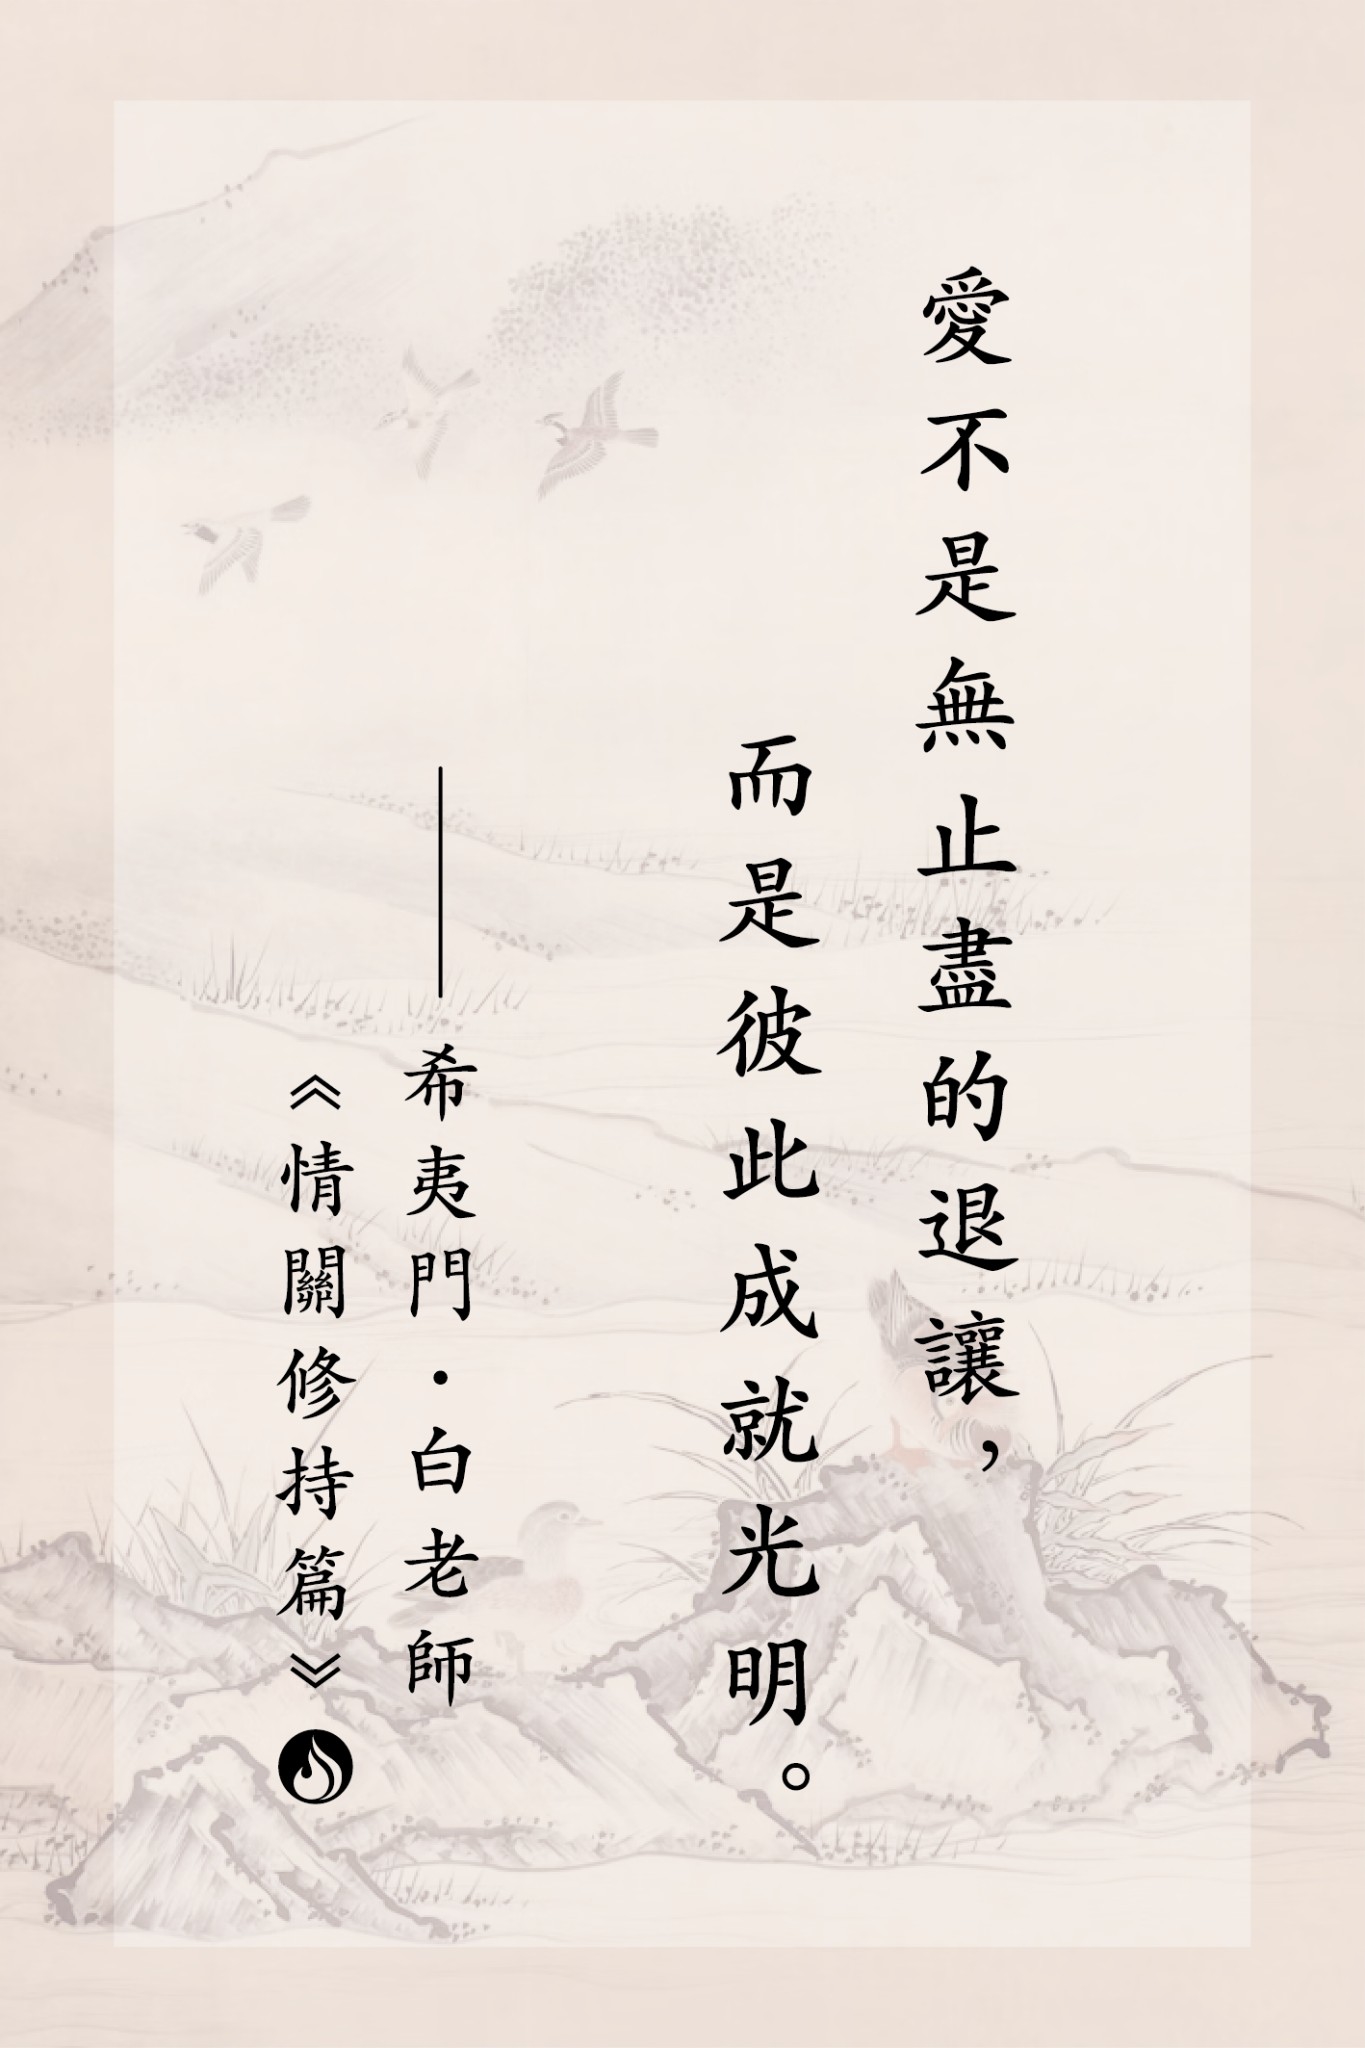 愛不是無止盡的退讓，
而是彼此成就光明。
——希夷門・白老師
《情關修持篇》